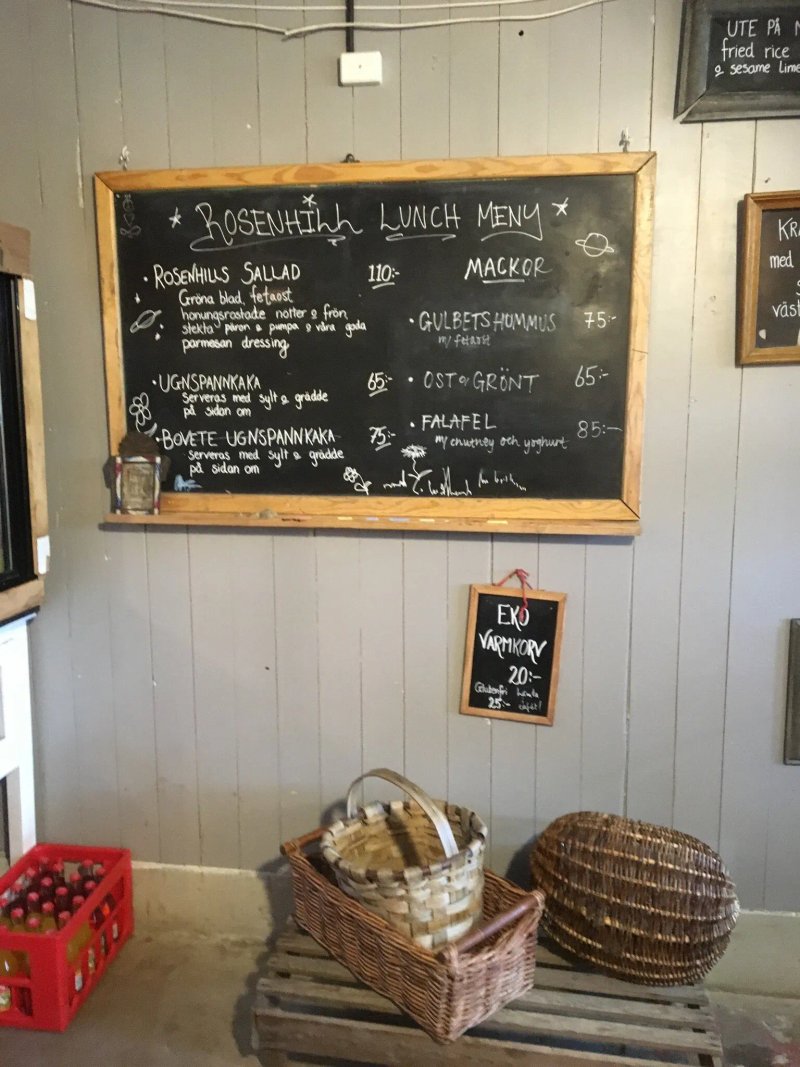 ROSENHILL LUNCH MENY
• ROSENHILLS SALLAD 110:-
Gröna blad, fetaost
honungsrostade nötter & frön
stekta päron & pumpa & våra goda
parmesan dressing
• UGNSPANNKAKA 65:-
Serveras med sylt & grädde
på sidan om
• BOVETE UGNSPANNKAKA 75:-
Serveras med sylt & grädde
på sidan om
MACKOR
• GULBETSHUMMUS 75:-
m/ fetaost
• OST & GRÖNT 65:-
• FALAFEL 85:-
m/chutney och yoghurt
EKO
VARMKORV
20:-
Glutenfri
25:-
UTE PÅ
fried rice
& sesame lime
KRA
med
väst